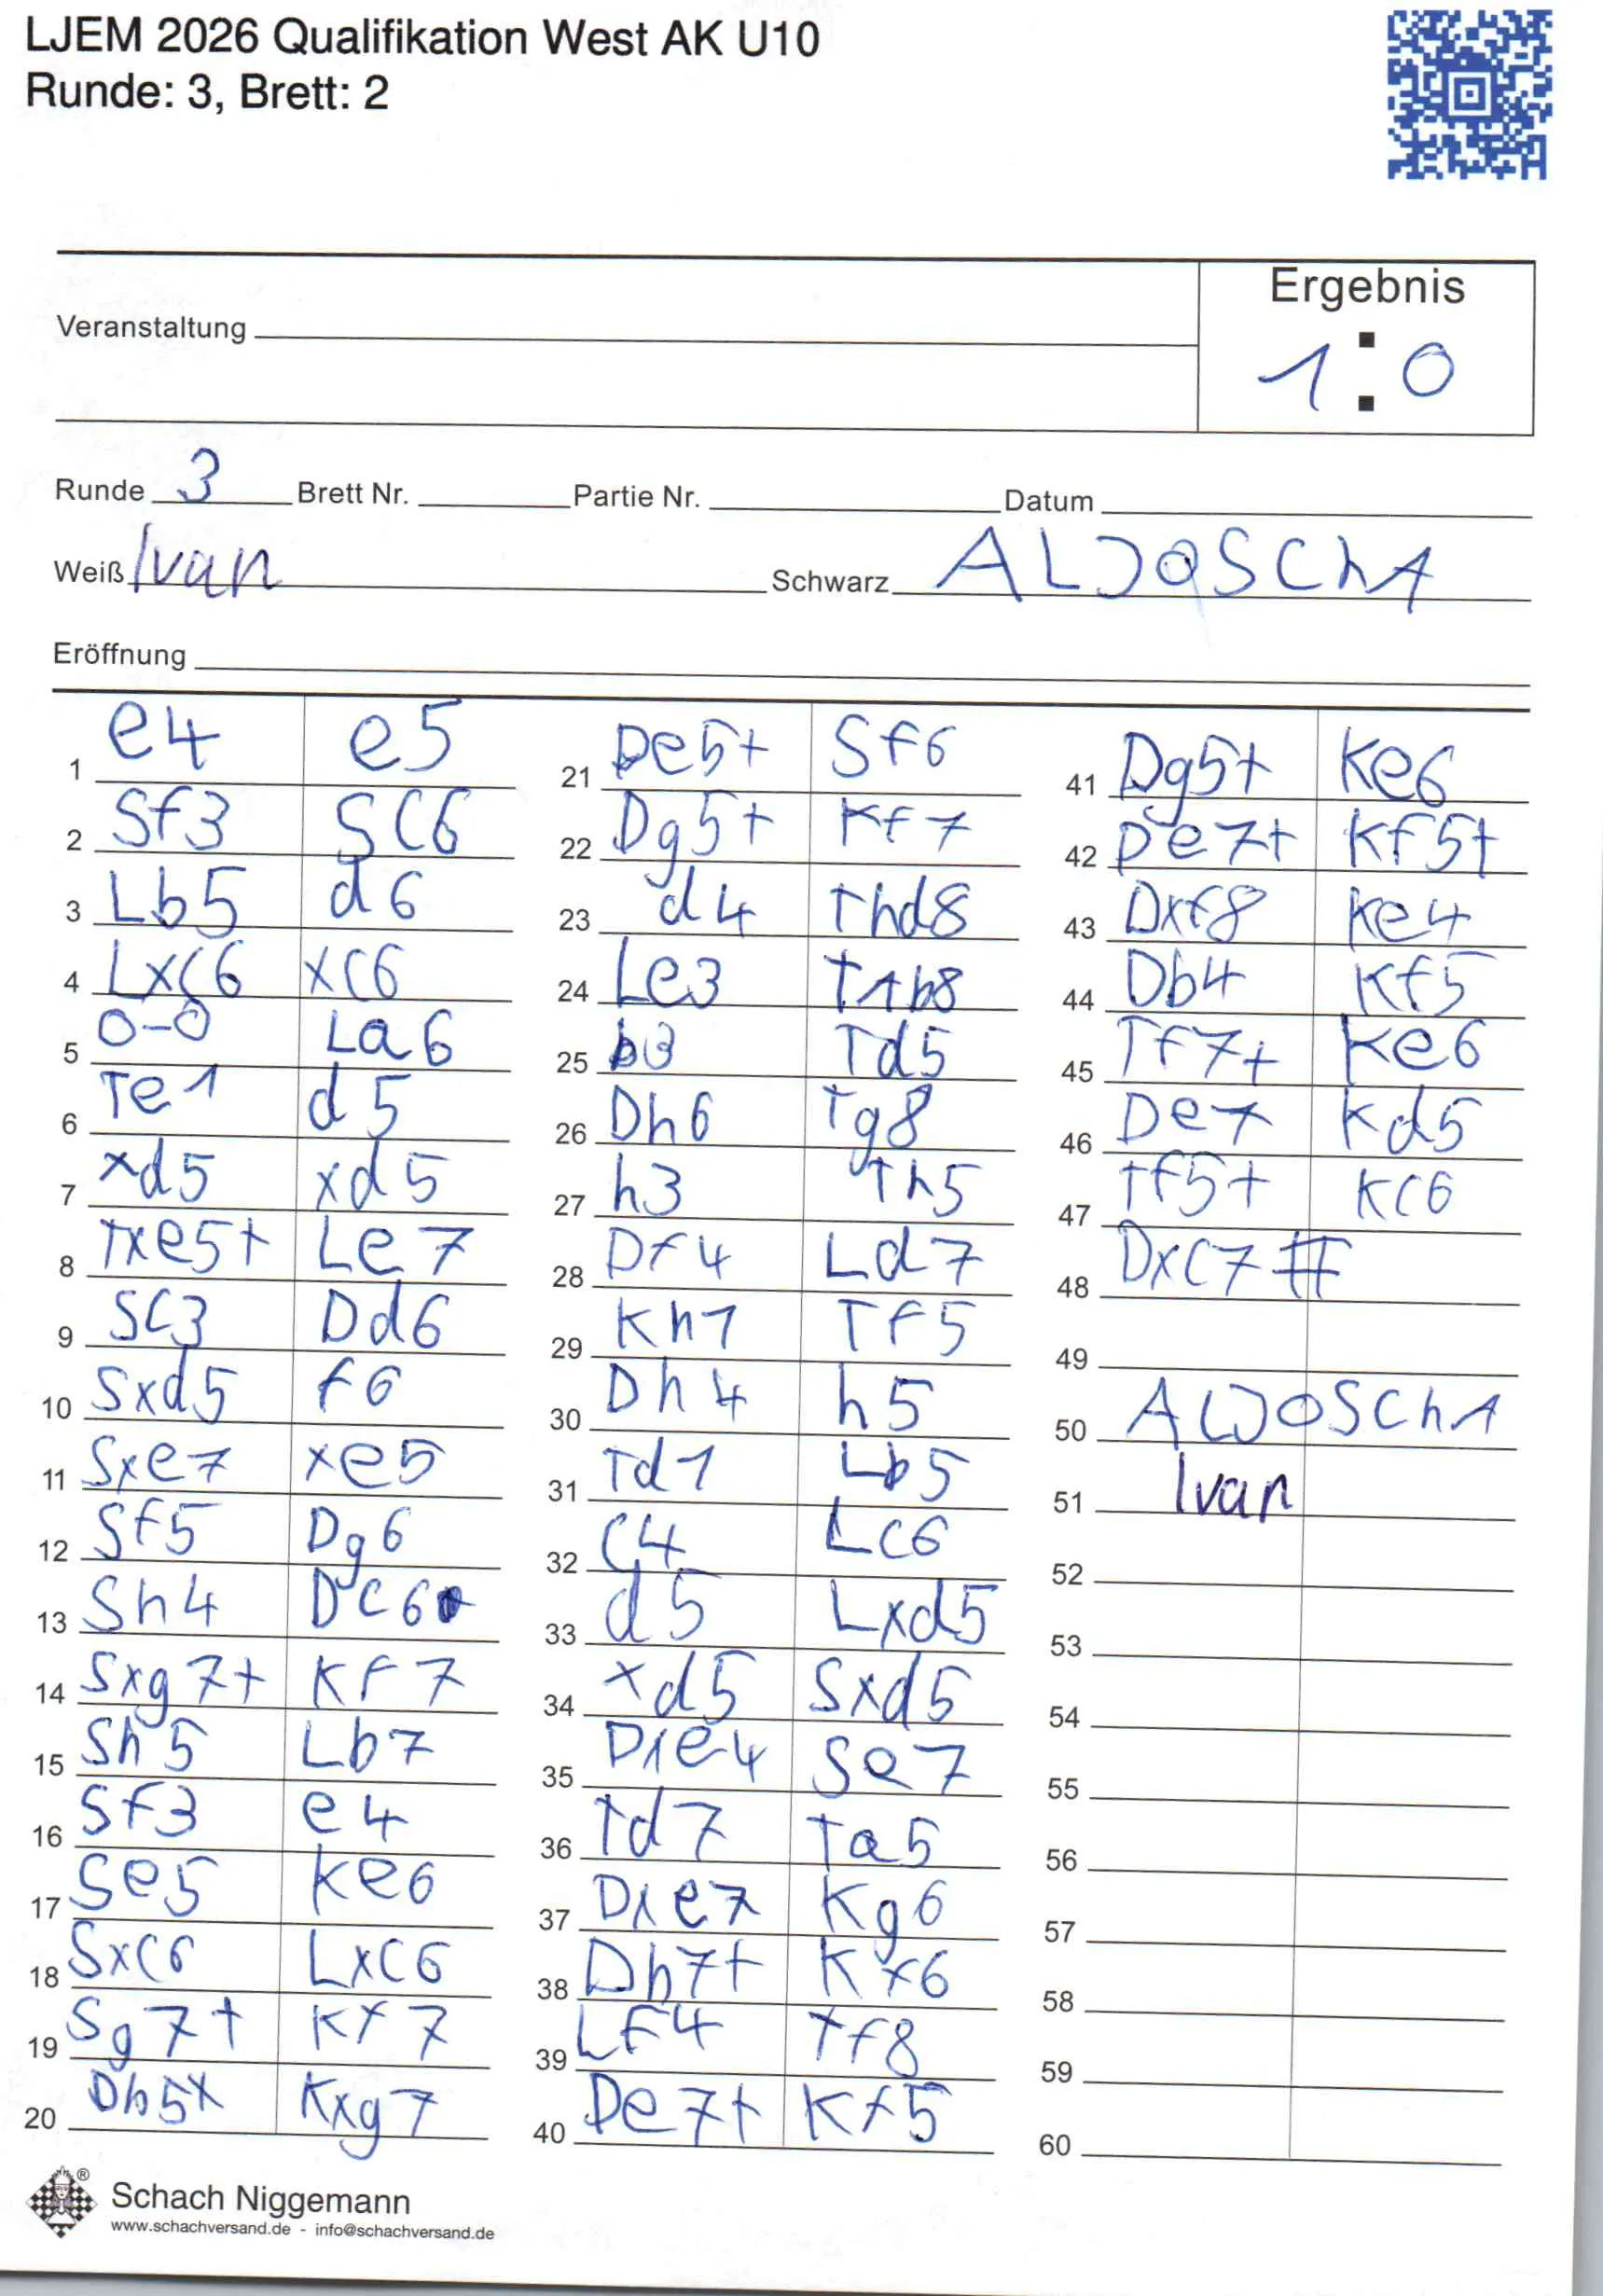 LJEM 2026 Qualifikation West AK U10
Runde: 3, Brett: 2
Ergebnis
1:0
Veranstaltung
Runde 3 Brett Nr. Partie Nr. Datum
Weiß Ivan Schwarz ALJOSChA
Eröffnung
1 e4 e5
2 Sf3 SC6
3 Lb5 d6
4 LxC6 xC6
5 0-0 La6
6 Te1 d5
7 xd5 xd5
8 Txe5+ Le7
9 SC3 Dd6
10 Sxd5 f6
11 Sxe7 xe5
12 Sf5 Dg6
13 Sh4 DC6
14 Sxg7+ Kf7
15 Sh5 Lb7
16 Sf3 e4
17 Se5 Ke6
18 SxC6 LxC6
19 Sg7+ Kf7
20 Dh5x Kxg7
21 De5+ Sf6
22 Dg5+ Kf7
23 d4 Thd8
24 Le3 T1b8
25 b3 Td5
26 Dh6 Tg8
27 h3 Th5
28 Df4 Ld7
29 Kh1 Tf5
30 Dh4 h5
31 Td1 Lb5
32 C4 LC6
33 d5 Lxd5
34 xd5 Sxd5
35 D1e4 Se7
36 Td7 Ta5
37 Dxe7 Kg6
38 Dh7+ Kf6
39 LF4 Tf8
40 De7+ Kf5
41 Dg5+ Ke6
42 De7+ Kf5+
43 Dxf8 Ke4
44 Db4 Kf5
45 Tf7+ Ke6
46 De7 Kd5
47 Tf5+ KC6
48 DxC7#
49
50 ALJOSChA
51 Ivan
52
53
54
55
56
57
58
59
60
®
Schach Niggemann
www.schachversand.de - info@schachversand.de